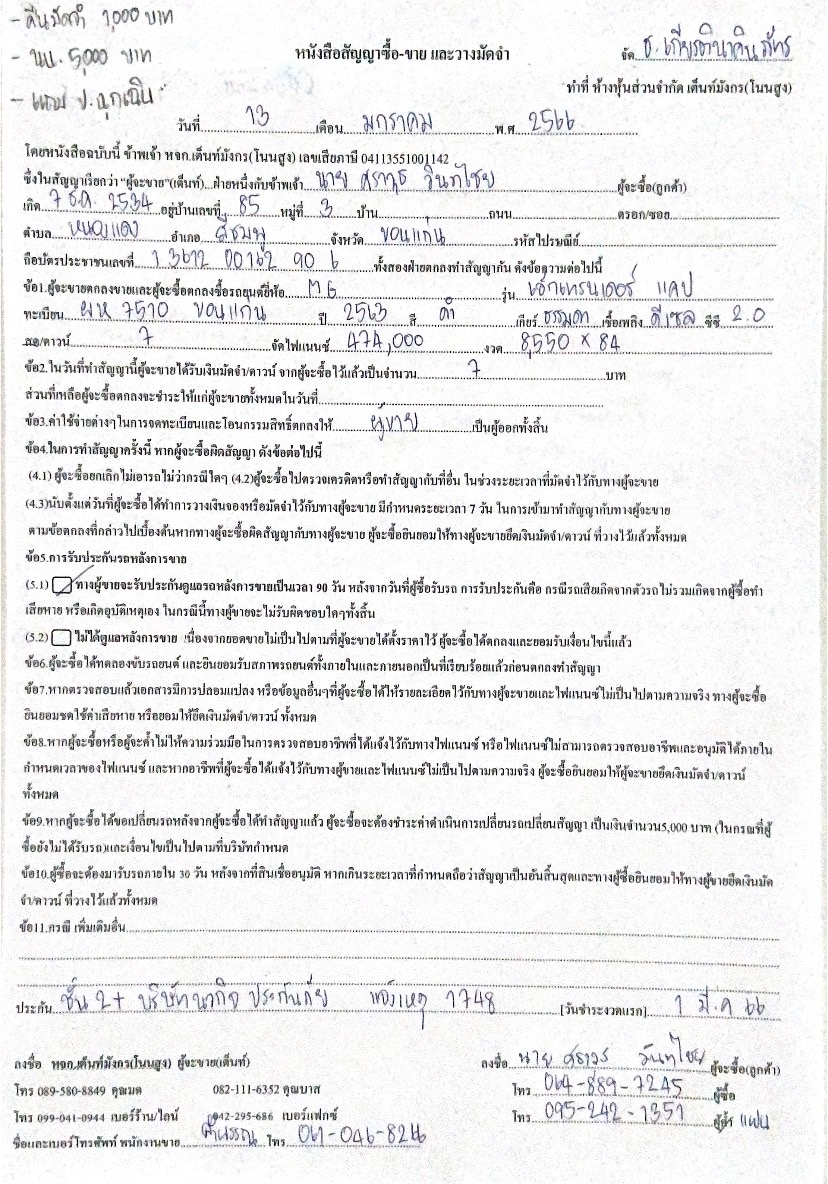 - คืนมัดจำ 1,000 บาท
- นน. 5,000 บาท
- แถม ป.ฉุกเฉิน
หนังสือสัญญาซื้อ-ขาย และวางมัดจำ
จัด ธ.เกียรตินาคินภัทร
ทำที่ ห้างหุ้นส่วนจำกัด เต็นท์มังกร(โนนสูง)
วันที่ 13 เดือน มกราคม พ.ศ 2566
โดยหนังสือฉบับนี้ ข้าพเจ้า หจก.เต็นท์มังกร(โนนสูง) เลขเสียภาษี 04113551001142
ซึ่งในสัญญาเรียกว่า "ผู้จะขาย"(เต็นท์)....ฝ่ายหนึ่งกับข้าพเจ้า นาย ศราวุธ วันทาไชย ผู้จะซื้อ(ลูกค้า)
เกิด 7 ธ.ค. 2534 อยู่บ้านเลขที่ 85 หมู่ที่ 3 บ้าน ถนน ตรอก/ซอย
ตำบล หนองแดง อำเภอ สีชมพู จังหวัด ขอนแก่น รหัสไปรษณีย์
ถือบัตรประชาชนเลขที่ 1 3612 00162 90 6 ทั้งสองฝ่ายตกลงทำสัญญากัน ดังข้อความต่อไปนี้
ข้อ1.ผู้จะขายตกลงขายและผู้จะซื้อตกลงซื้อรถยนต์ยี่ห้อ MG รุ่น เอ็กเทรนเดอร์ แคป
ทะเบียน ผห 7510 ขอนแก่น ปี 2563 สี ดำ เกียร์ ธรรมดา เชื้อเพลิง ดีเซล ซีซี 2.0
สด/ดาวน์ 7 จัดไฟแนนซ์ 474,000 งวด 8,550 × 84
ข้อ2.ในวันที่ทำสัญญานี้ผู้จะขายได้รับเงินมัดจำ/ดาวน์ จากผู้จะซื้อไว้แล้วเป็นจำนวน 7 บาท
ส่วนที่เหลือผู้จะซื้อตกลงจะชำระให้แก่ผู้จะขายทั้งหมดในวันที่
ข้อ3.ค่าใช้จ่ายต่างๆในการจดทะเบียนและโอนกรรมสิทธิ์ตกลงให้ ผู้ขาย เป็นผู้ออกทั้งสิ้น
ข้อ4.ในการทำสัญญาครั้งนี้ หากผู้จะซื้อผิดสัญญา ดังข้อต่อไปนี้
(4.1) ผู้จะซื้อยกเลิกไม่เอารถไม่ว่ากรณีใดๆ (4.2)ผู้จะซื้อไปตรวจเครดิตหรือทำสัญญากับที่อื่น ในช่วงระยะเวลาที่มัดจำไว้กับทางผู้จะขาย
(4.3)นับตั้งแต่วันที่ผู้จะซื้อได้ทำการวางเงินจองหรือมัดจำไว้กับทางผู้จะขาย มีกำหนดระยะเวลา 7 วัน ในการเข้ามาทำสัญญากับทางผู้จะขาย
ตามข้อตกลงที่กล่าวไปเบื้องต้นหากทางผู้จะซื้อผิดสัญญากับทางผู้จะขาย ผู้จะซื้อยินยอมให้ทางผู้จะขายยึดเงินมัดจำ/ดาวน์ ที่วางไว้แล้วทั้งหมด
ข้อ5.การรับประกันรถหลังการขาย
(5.1) ทางผู้ขายจะรับประกันดูแลรถหลังการขายเป็นเวลา 90 วัน หลังจากวันที่ผู้ซื้อรับรถ การรับประกันคือ กรณีรถเสียเกิดจากตัวรถไม่รวมเกิดจากผู้ซื้อทำ
เสียหาย หรือเกิดอุบัติเหตุเอง ในกรณีนี้ทางผู้ขายจะไม่รับผิดชอบใดๆทั้งสิ้น
(5.2) ไม่ได้ดูแลหลังการขาย เนื่องจากยอดขายไม่เป็นไปตามที่ผู้จะขายได้ตั้งราคาไว้ ผู้จะซื้อได้ตกลงและยอมรับเงื่อนไขนี้แล้ว
ข้อ6.ผู้จะซื้อได้ทดลองขับรถยนต์ และยินยอมรับสภาพรถยนต์ทั้งภายในและภายนอกเป็นที่เรียบร้อยแล้วก่อนตกลงทำสัญญา
ข้อ7.หากตรวจสอบแล้วเอกสารมีการปลอมแปลง หรือข้อมูลอื่นๆที่ผู้จะซื้อได้ให้รายละเอียดไว้กับทางผู้จะขายและไฟแนนซ์ไม่เป็นไปตามความจริง ทางผู้จะซื้อ
ยินยอมชดใช้ค่าเสียหาย หรือยอมให้ยึดเงินมัดจำ/ดาวน์ ทั้งหมด
ข้อ8.หากผู้จะซื้อหรือผู้จะค้ำไม่ให้ความร่วมมือในการตรวจสอบอาชีพที่ได้แจ้งไว้กับทางไฟแนนซ์ หรือไฟแนนซ์ไม่สามารถตรวจสอบอาชีพและอนุมัติได้ภายใน
กำหนดเวลาของไฟแนนซ์ และหากอาชีพที่ผู้จะซื้อได้แจ้งไว้กับทางผู้ขายและไฟแนนซ์ไม่เป็นไปตามความจริง ผู้จะซื้อยินยอมให้ผู้จะขายยึดเงินมัดจำ/ดาวน์
ทั้งหมด
ข้อ9.หากผู้จะซื้อได้ขอเปลี่ยนรถหลังจากผู้จะซื้อได้ทำสัญญาแล้ว ผู้จะซื้อจะต้องชำระค่าดำเนินการเปลี่ยนรถเปลี่ยนสัญญา เป็นเงินจำนวน5,000 บาท (ในกรณที่ผู้
ซื้อยังไม่ได้รับรถ)และเงื่อนไขเป็นไปตามที่บริษัทกำหนด
ข้อ10.ผู้ซื้อจะต้องมารับรถภายใน 30 วัน หลังจากที่สินเชื่ออนุมัติ หากเกินระยะเวลาที่กำหนดถือว่าสัญญาเป็นอันสิ้นสุดและทางผู้ซื้อยินยอมให้ทางผู้ขายยึดเงินมัด
จำ/ดาวน์ ที่วางไว้แล้วทั้งหมด
ข้อ11.กรณี เพิ่มเติมอื่น
ประกัน ชั้น 2+ บริษัทนวกิจ ประกันภัย แจ้งเหตุ 1748 [วันชำระงวดแรก] 1 มี.ค 66
ลงชื่อ หจก.เต็นท์มังกร(โนนสูง) ผู้จะขาย(เต็นท์) ลงชื่อ นาย ศราวุธ วันทาไชย ผู้จะซื้อ(ลูกค้า)
โทร 089-580-8849 คุณมด 082-111-6352 คุณบาส โทร 064-889-7245 ผู้ซื้อ
โทร 099-041-0944 เบอร์ร้าน/ไลน์ 042-295-686 เบอร์แฟกซ์ โทร 095-242-1351 แฟน
ชื่อและเบอร์โทรศัพท์ พนักงานขาย โทร 061-046-8266